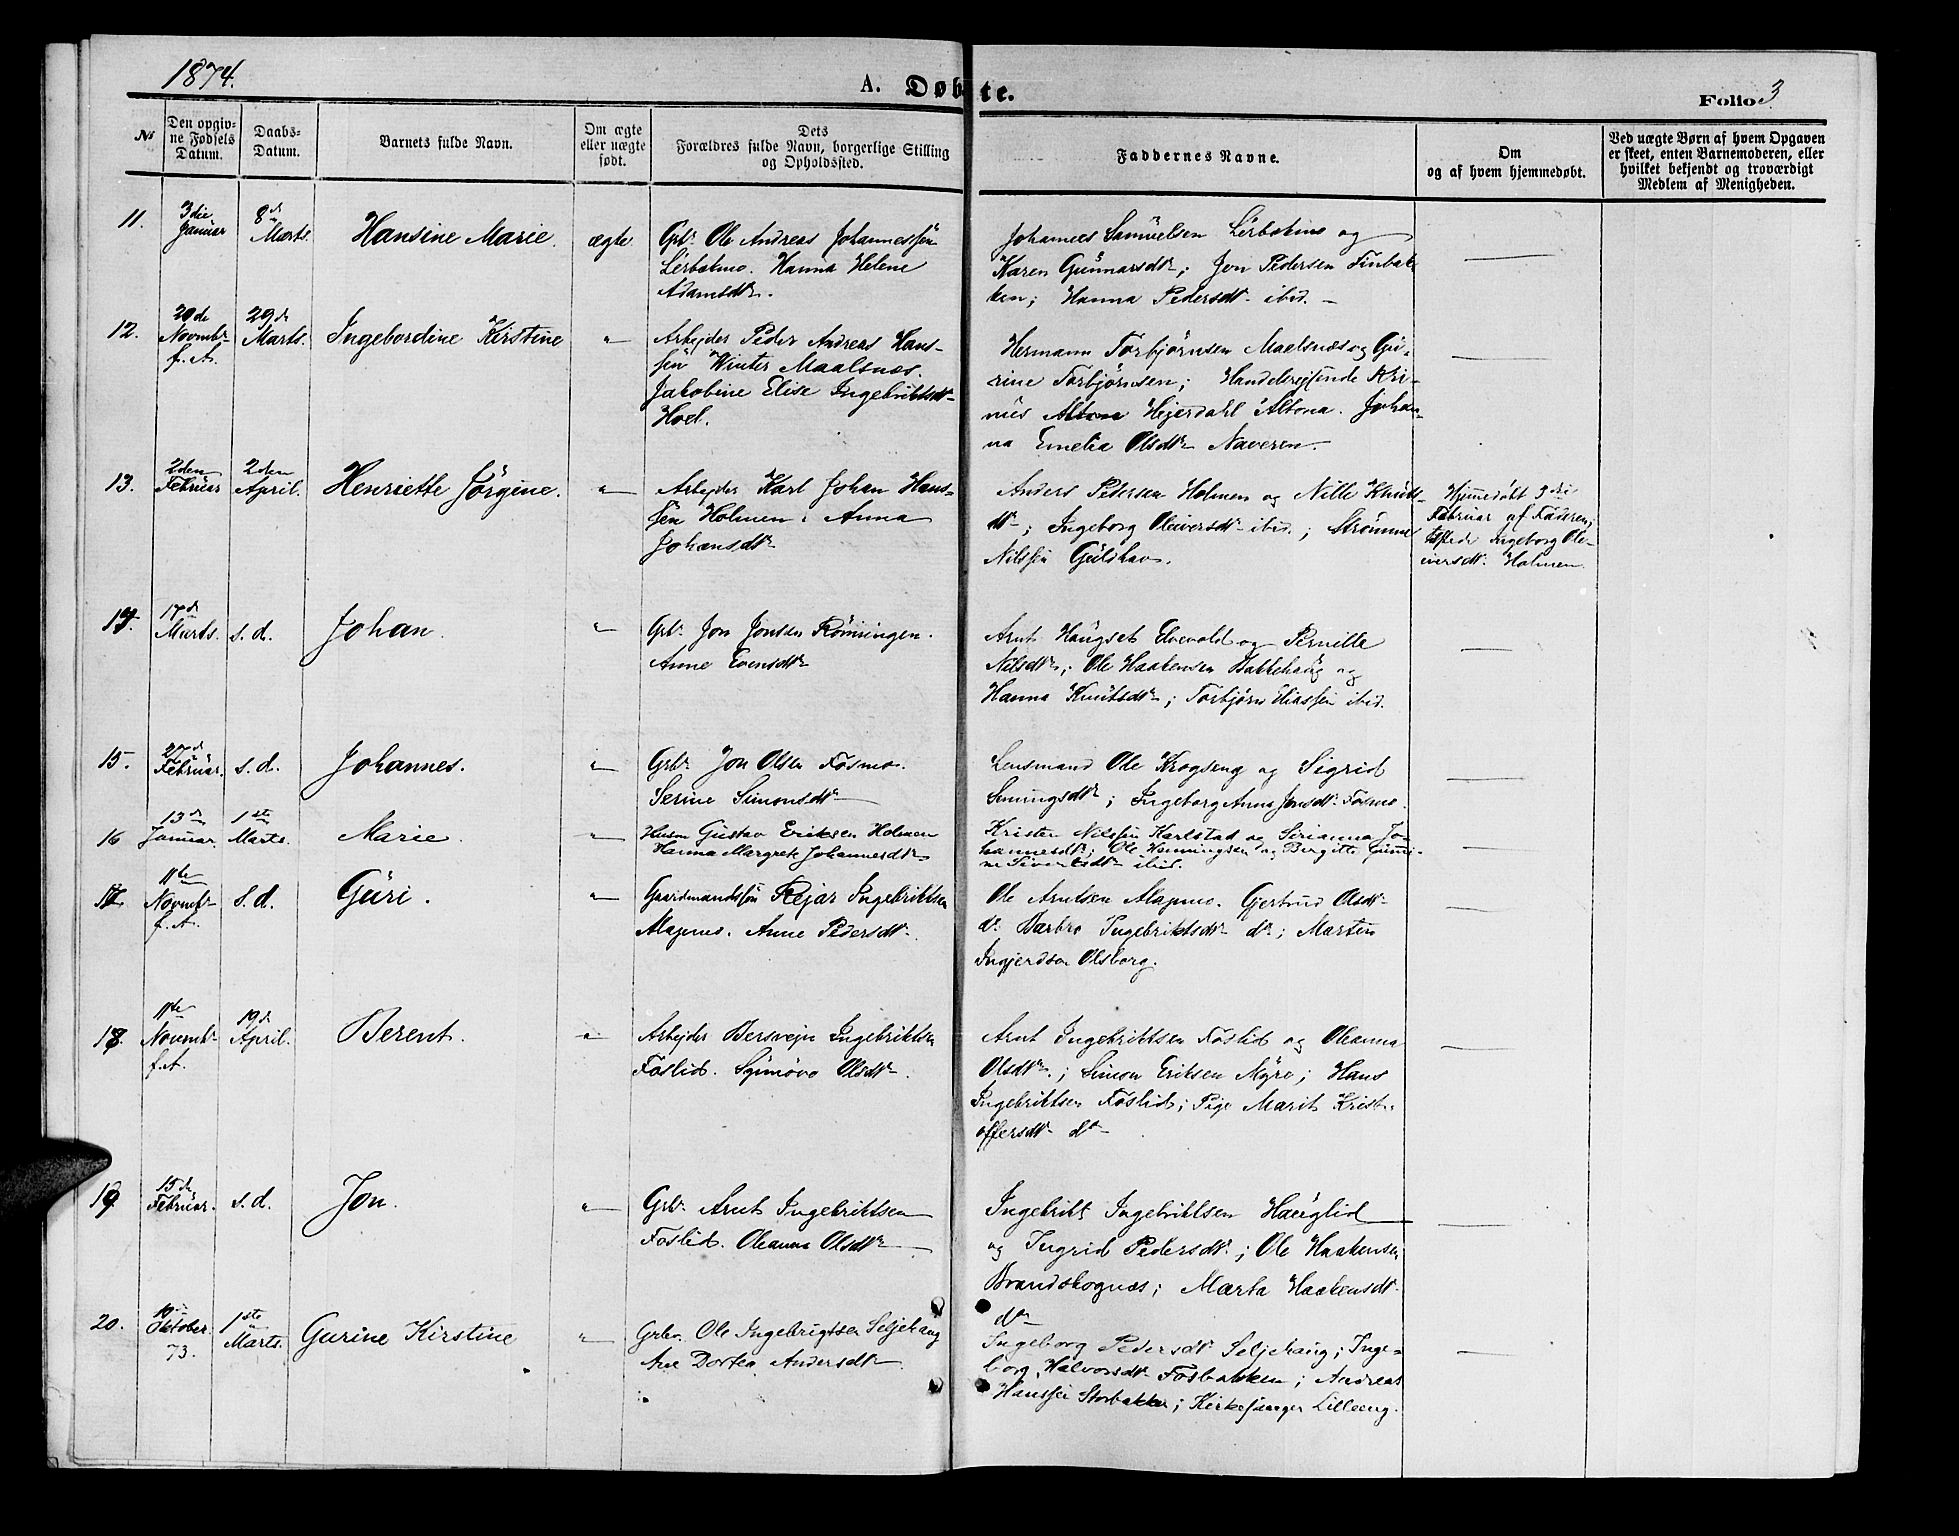 1874.
A. Døbte.
Folio 3
No
Den opgiv-
ne Fødsels
Datum.
Daabs-
Datum.
Barnets fulde Navn.
Om ægte
eller uægte
født.
Dets
Forældres fulde Navn, borgerlige Stilling
og Opholdssted.
Faddernes Navne.
Om
og af hvem hjemmedøbt.
Ved uægte Børn af hvem Opgaven
er skeet, enten Barnemoderen, eller
hvilket bekjendt og troværdigt
Medlem af Menigheden.
11.
3die
Januar
8de
Marts.
Hansine Marie.
ægte
Grbr. Ole Andreas Johannessen
Lerbakmo. Hanna Helene
Adamsdtr.
Johannes Samuelsen Lerbakmo og
Karen Gunnarsdtr; Jon Pedersen Finbak-
ken; Hanna Pedersdtr ibid. –
12.
Novmbr
f. A.
29de
Marts.
Ingebordine Kirstine
"
Arbejder Peder Andreas Hans-
sen Winter Maalsnæs.
Jakobine Elise Ingebriktsdtr
Hoel.
Hermann Torbjørnsen Maalsnæs og Gu-
rine Torbjørnsen; Handelsrejsende
Hejerdahl Altona. Johan-
na Emelia Olsdtr Naveren.
13.
2den
Februar
2den
April.
Henriette Jørgine.
"
Arbejder Karl Johan Hans-
sen Holmen. Anna
Johansdtr
Anders Pedersen Holmen og Nille Knuts-
dtr; Ingeborg Oliversdtr ibid.; Strømme
Nilssen Guldhav.
Hjemmedøbt 3die
Februar af Faderen;
tilstede Ingeborg Ole-
iversdtr. Holmen.
17de
Marts.
s. d.
Johan.
"
Grbr. Jon Jonsen Rømingen.
Anne Evensdtr
Arnt Haugset Elvevold og Pernille
Nilsdtr; Ole Haakensen Bakkehaug og
Hanna Knutsdtr; Torbjørn Eliassen ibid.
15.
Februar.
s. d.
Johannes.
"
Grbr. Jon Olsen Fosmo.
Serine Simonsdtr
Lensmand Ole Krogseng og Sigrid
Simingsdtr; Ingeborg Anna Jonsdtr. Fosmo.
16
13de
Januar.
1ste
Marts.
Marie.
"
Husm Gustav Eriksen Holmen
Hanna Margrete Johannesdtr
Kristen Nilssen Karlstad og Serianna Jo-
hannesdtr; Ole Henningsen og Bergitte
Siverts dtr ibid.
11te
Novmbr
f. A.
s. d.
Guri.
"
Gaardmandssøn Rejar Ingebriktsen
Alapmo. Anne Pedersdtr.
Ole Arntsen Alapmo. Gjertrud Olsdtr
do. Barbro Ingebriktsdtr do; Marten
Ingjerdsen Olsborg.
18
11te
Novmbr
f. A.
19de
April.
Berent.
"
Arbejder Bersvejn Ingebriktsen
Foslid. Synnøva Olsdtr.
Arnt Ingebriktsen Foslid og Oleanna
Olsdtr.; Simon Eriksen Myre; Hans
Ingebriktsen Foslid; Pige Marit Krist-
offersdtr do
19
15de
Februar.
s. d.
Jon.
"
Grbr. Arnt Ingebriktsen
Foslid. Oleanna Olsdtr
Ingebrikt Ingebriktsen Hauglid
og Ingrid Pedersdtr.; Ole Haakensen
Brandskognæs; Marta Haakensdtr.
do
20.
Oktober
73.
1ste
Marts.
Gurine Kirstine
"
Grbr. Ole Ingebrigtsen Seljehaug
Ane Dortea Andersdtr.
Ingeborg Pedersdtr. Seljehaug; Inge-
borg Halvorsdtr Fosbakken; Andreas
Hanssen Storbakken; Kirkesanger Lilleeng.